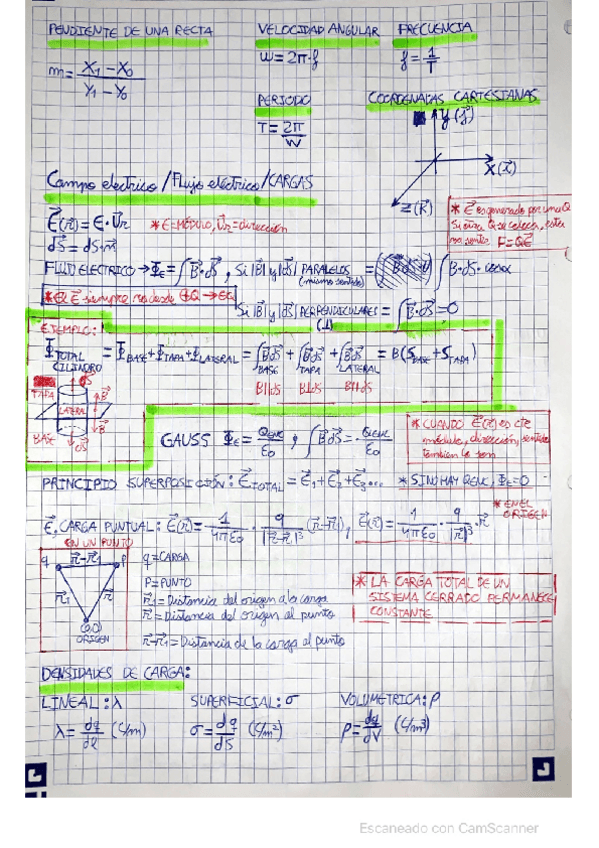 PENDIENTE DE UNA RECTA
m = X₁ - X₀ / Y₁ - Y₀
VELOCIDAD ANGULAR
W = 2π·f
FRECUENCIA
f = 1/T
PERIODO
T = 2π/W
COORDENADAS CARTESIANAS
Y(j)
X(i)
Z(K)
Campo electrico / Flujo eléctrico / CARGAS
E(r) = E · Ur
* E = MÓDULO, Ur = dirección
dS = dS · n
* E es generado por una Q
F = QE
FLUJO ELECTRICO → Φε = ∫ B·dS, Si |B| y |dS| PARALELOS (mismo sentido) = ∫ B·dS·cosα
Si |B| y |dS| PERPENDICULARES (⊥) = ∫ B·dS = 0
EJEMPLO:
Φ TOTAL CILINDRO = Φ BASE + Φ TAPA + Φ LATERAL = ∫ BdS BASE + ∫ BdS TAPA + ∫ BdS LATERAL = B(S BASE + S TAPA)
TAPA
LATERAL
BASE
dS
B
B
dS
GAUSS Φε = Qenc/ε0 ; ∫ B·dS = Qenc/ε0
* CUANDO E(r) es cte
módulo, dirección, sentido
tambien lo son
PRINCIPIO SUPERPOSICIÓN: E TOTAL = E₁ + E₂ + E₃...
* SI NO HAY Qenc, Φε = 0
E, CARGA PUNTUAL: E(r) = 1/4πε0 · q/|r-r₁|³ (r-r₁), E(r) = 1/4πε0 · q/|r|³ · r
* EN EL ORIGEN
EN UN PUNTO
q r-r₁ P
r₁ r
ORIGEN
q = CARGA
P = PUNTO
r₁ = Distancia del origen a la carga
r = Distancia del origen al punto
r-r₁ = Distancia de la carga al punto
* LA CARGA TOTAL DE UN
SISTEMA CERRADO PERMANECE
CONSTANTE
DENSIDADES DE CARGA:
LINEAL: λ
λ = dq/dl (C/m)
SUPERFICIAL: σ
σ = dq/dS (C/m²)
VOLUMETRICA: ρ
ρ = dq/dV (C/m³)
Escaneado con CamScanner